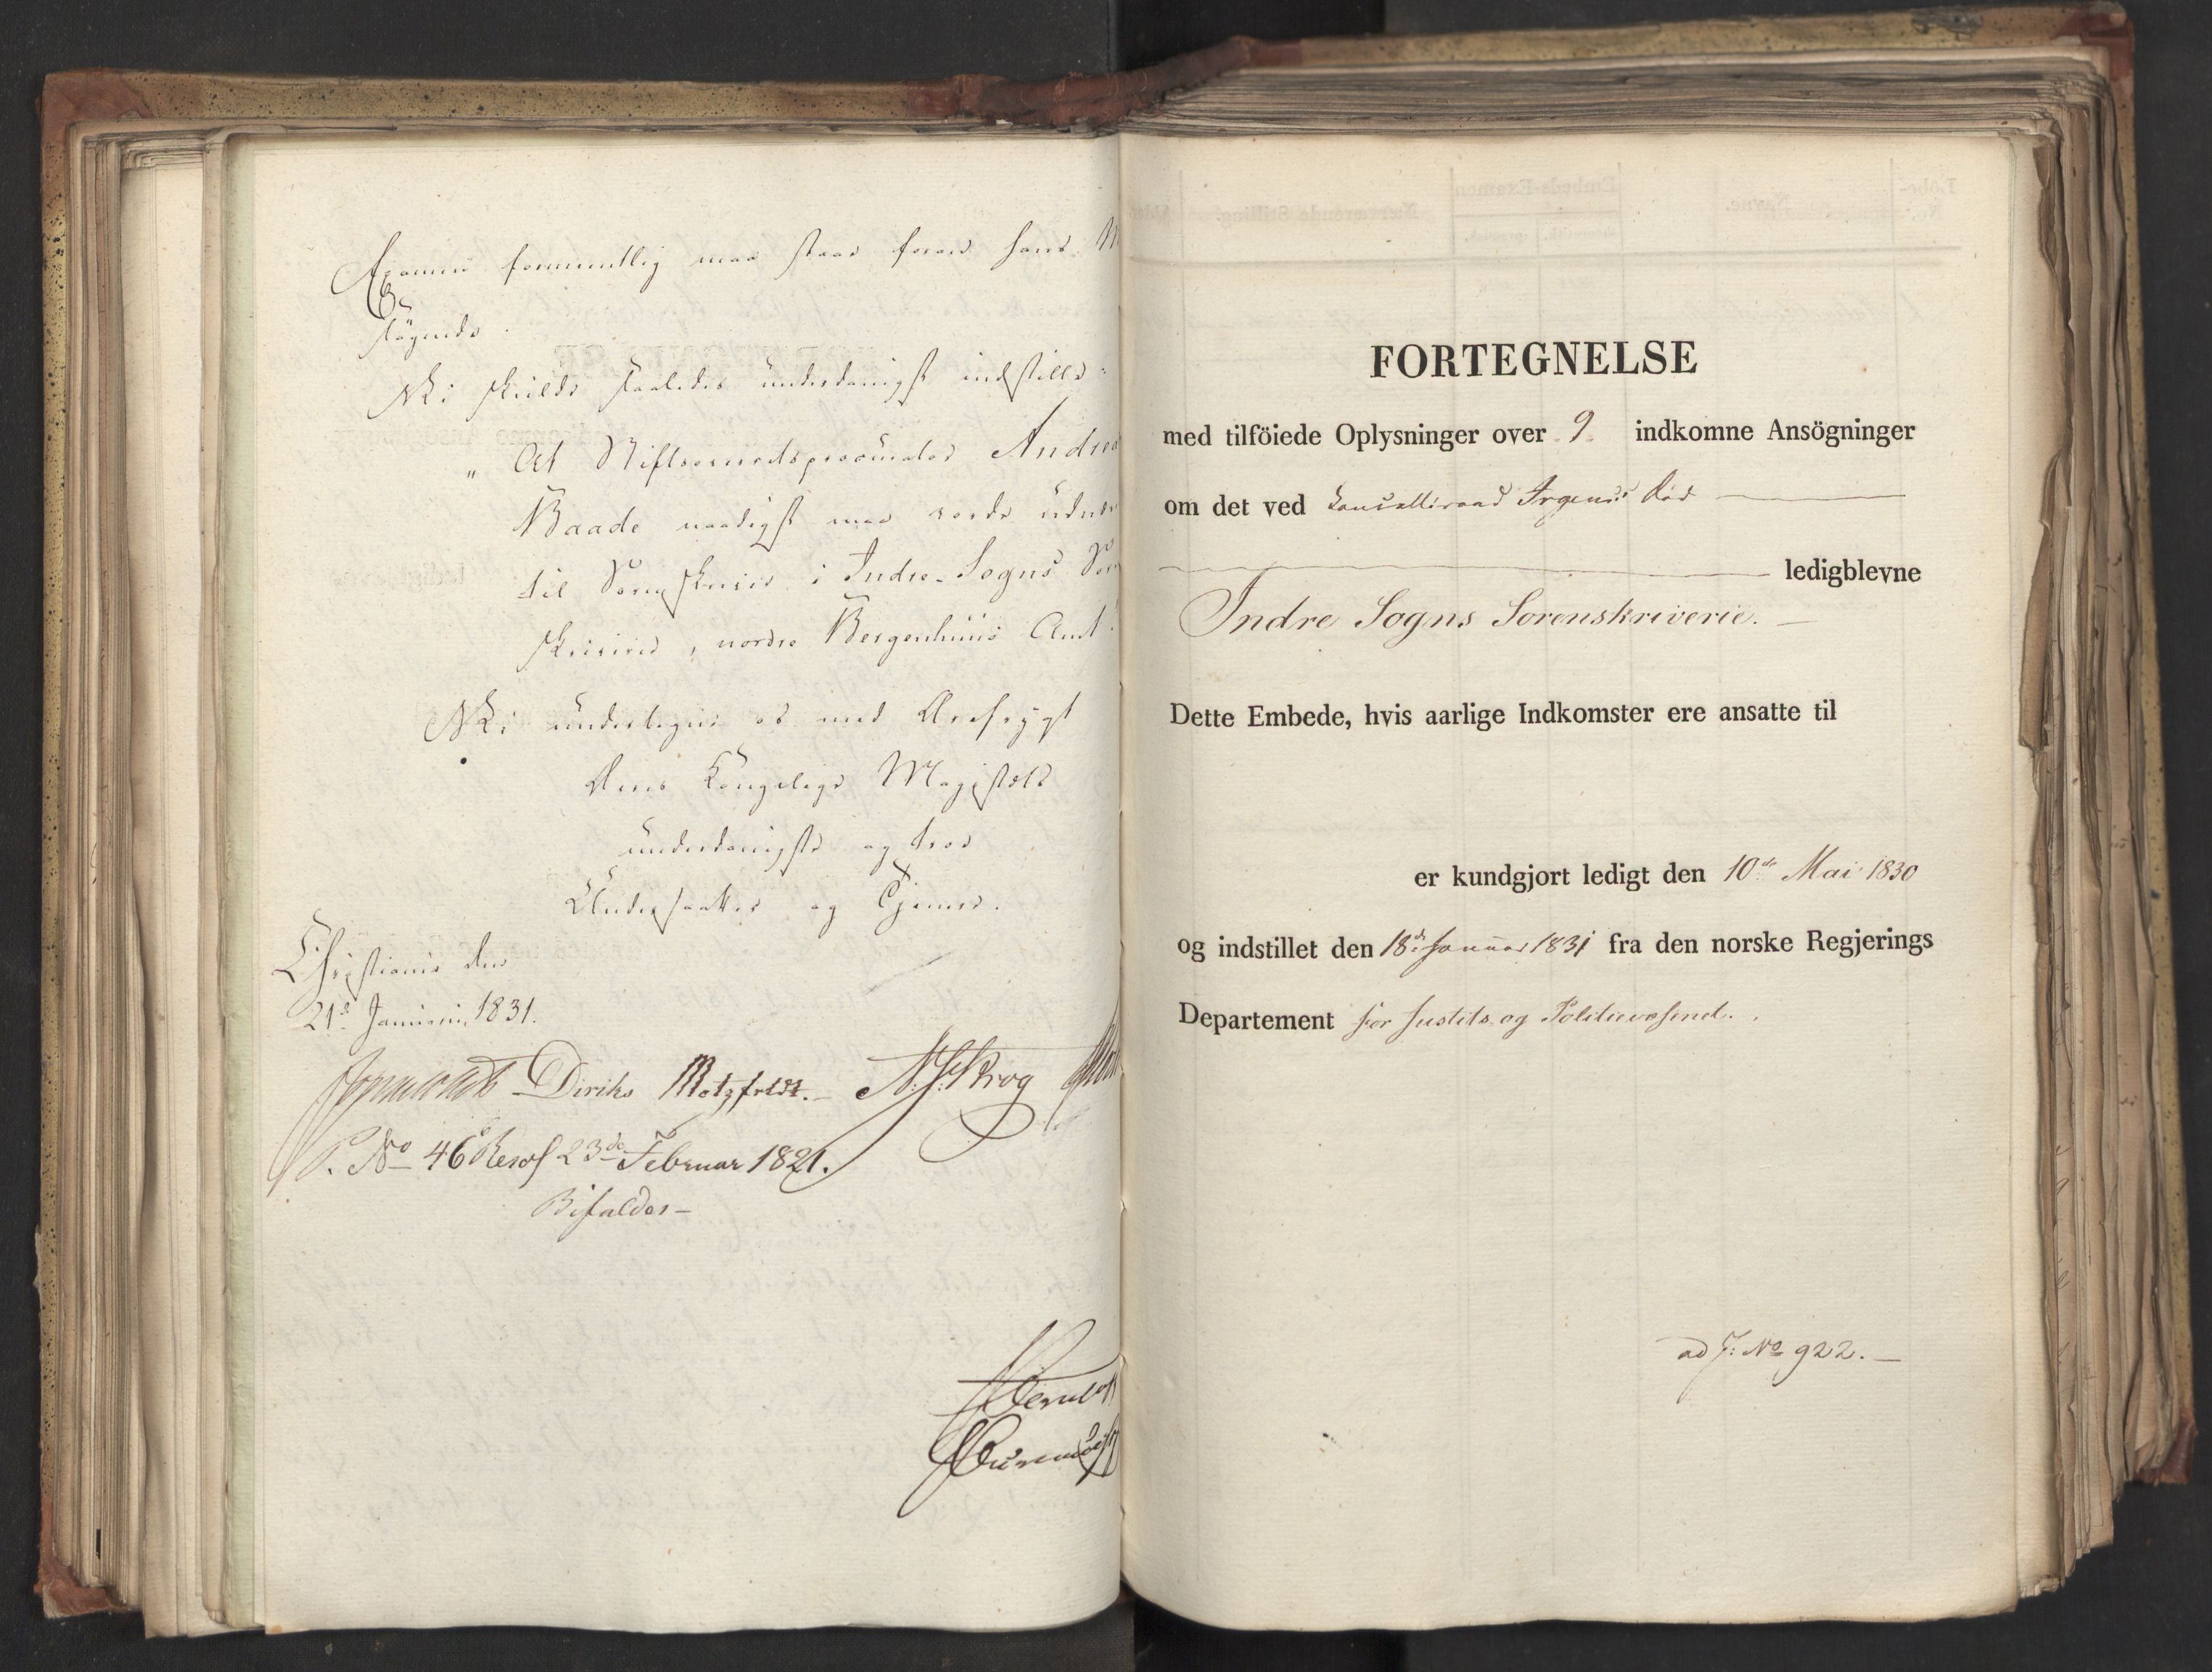 Examen formentlig maa staae foran hans M
søgende.
Vi skulde saaledes underdanigst indstille:
„ At Stiftsoverretsprocurator Andreas
Baade naadigst maa vorde udnæ
til Sorenskriver i Indre-Sogns Sor
skriverie, nordre Bergenhuus Amt.
Vi undertegne os med Ærefrygt
Deres Kongelige Majestæts
underdanigste og troe
Undersaatter og Tjenere.
Christiania den
21de Januarii 1831.
Diriks Motzfeldt. N. J. Krog
P. No 46 Resol 23de Februar 1821.
Bifaldes –
FORTEGNELSE
med tilföiede Oplysninger over 9 indkomne Ansögninger
om det ved Cancelliraad Irgens's Död
ledigblevne
Indre Sogns Sorenskriverie. –
Dette Embede, hvis aarlige Indkomster ere ansatte til
er kundgjort ledigt den 10de Mai 1830
og indstillet den 18de Januar 1831 fra den norske Regjerings
Departement for Justits- og Politievæsenet.
ad J: No 922. –